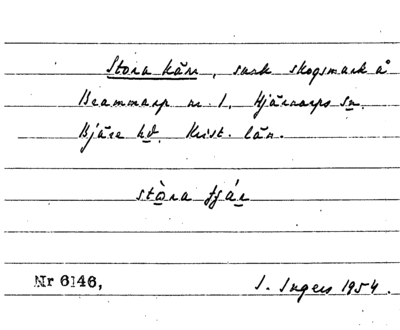 Stora kärr, sank skogsmark å
Brammarp nr 1, Hjärnarps sn.
Bjäre hd. Krist. län.
stòra tjár
Nr 6146,
I. Ingers 1954.